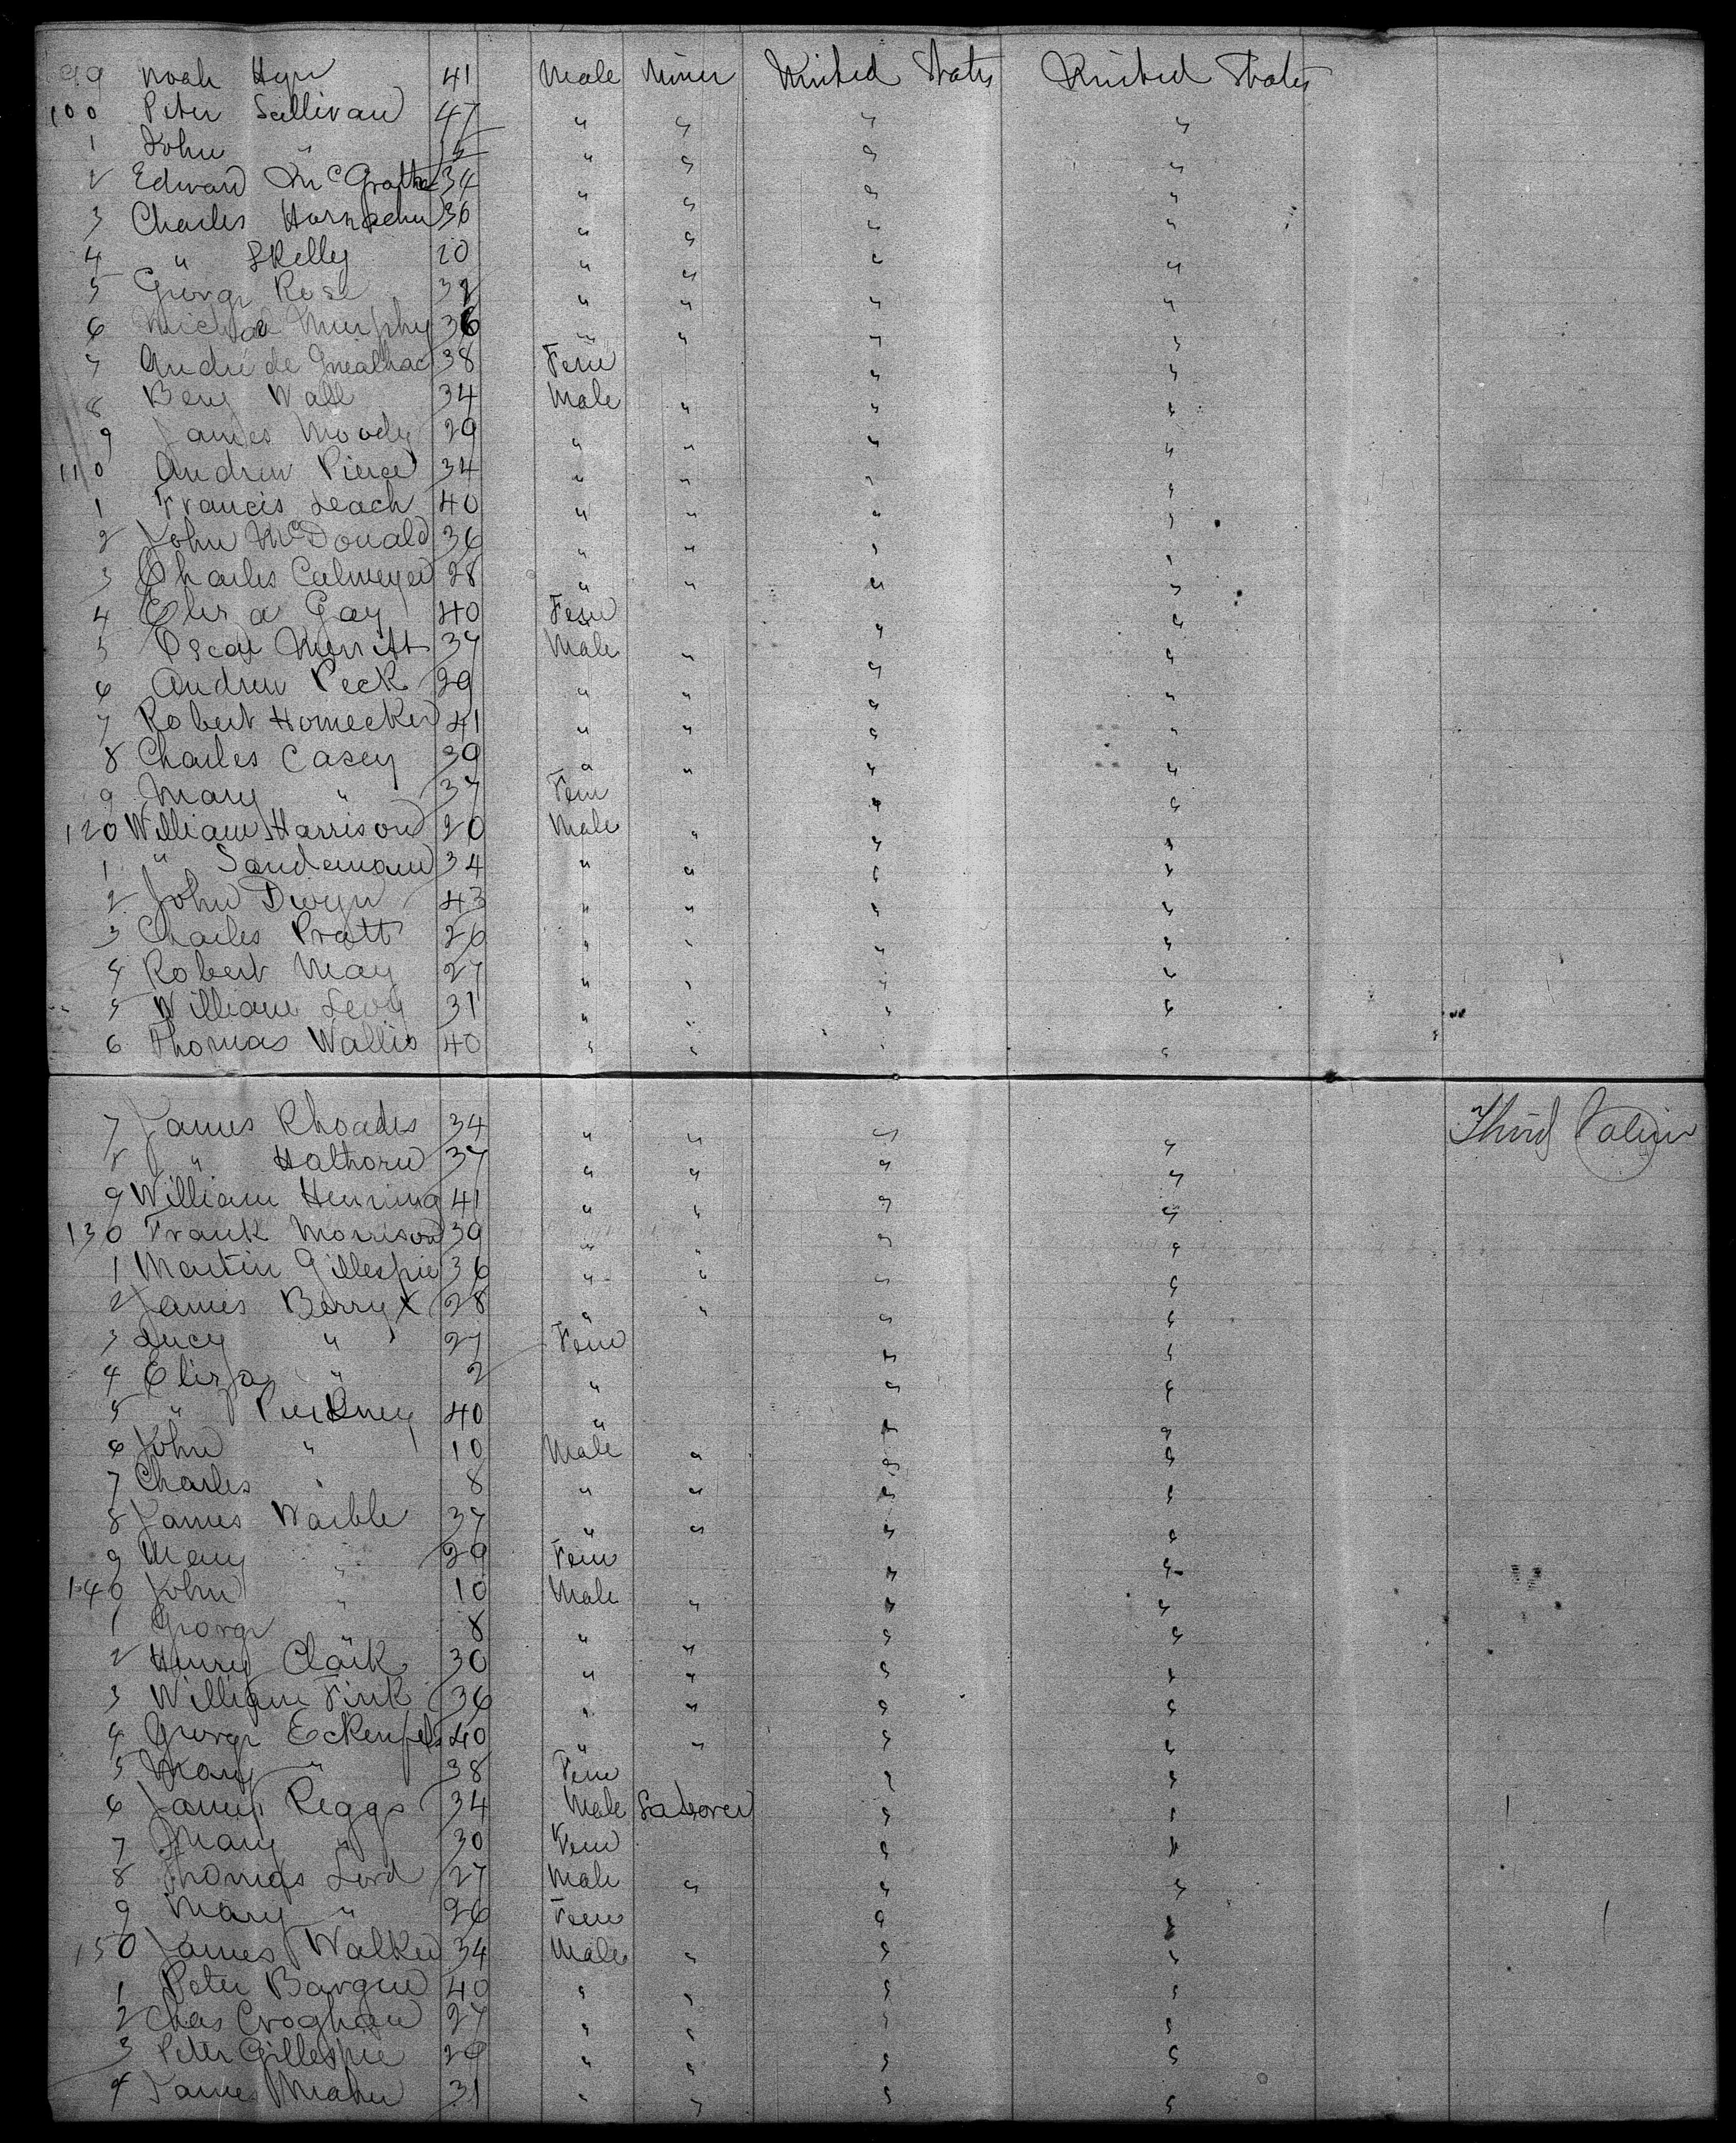 99 Noah Male Miner United States United States
100 Peter Sullivan 47 " " " "
1 John " 15 " " " "
2 Edward McGrath 34 " " " "
3 Charles 36 " " " "
4 " Skelly 20 " " " "
5 George Rose " " " "
6 Murphy 36 " " " "
7 Andrie de 38 Fem " "
8 Benj Wall 34 Male " " "
9 James Moody 29 " " " "
110 Andrew Pierce 34 " " " "
1 Francis Leach 40 " " " "
2 John McDonald 36 " " " "
3 Charles Calmeyer 28 " " " "
4 Eliza Gay 40 Fem " "
5 Oscar Merritt 37 Male " " "
6 Andrew Peck 29 " " " "
7 Robert Homecker 41 " " " "
8 Charles Casey 39 " " " "
9 Mary " 37 Fem " "
120 William Harrison 20 Male " " "
1 " Sandeman 34 " " " "
2 John Dwyer 43 " " " "
3 Charles Pratt 26 " " " "
4 Robert May 27 " " " "
5 William Levy 31 " " " "
6 Thomas Wallis 40 " " " "
7 James Rhoades 34 " " " " Third
8 " Halthorn 37 " " " "
9 William Henning 41 " " " "
130 Frank Morrison 39 " " " "
1 Martin Gillespie 36 " " " "
2 James Berry x 28 " " " "
3 Lucy " 27 Fem " "
4 Eliza " 2 " " "
5 " Pinckney 40 " " "
6 John " 10 Male " " "
7 Charles " 8 " " " "
8 James Waible 37 " " " "
9 Mary " 29 Fem " "
140 John " 10 Male " " "
1 George 8 " " " "
2 Henry Clark 30 " " " "
3 William Fink 36 " " " "
4 George Eckenfels 40 " " " "
5 Mary " 38 Fem " "
6 James Riggs 34 Male Laborer " "
7 Mary " 30 Fem " "
8 Thomas Lord 27 Male " " "
9 Mary " 26 Fem " "
150 James Walker 34 Male " " "
1 Peter 40 " " " "
2 Chas Croghan 27 " " " "
3 Peter Gillespie 29 " " " "
4 James 31 " " " "